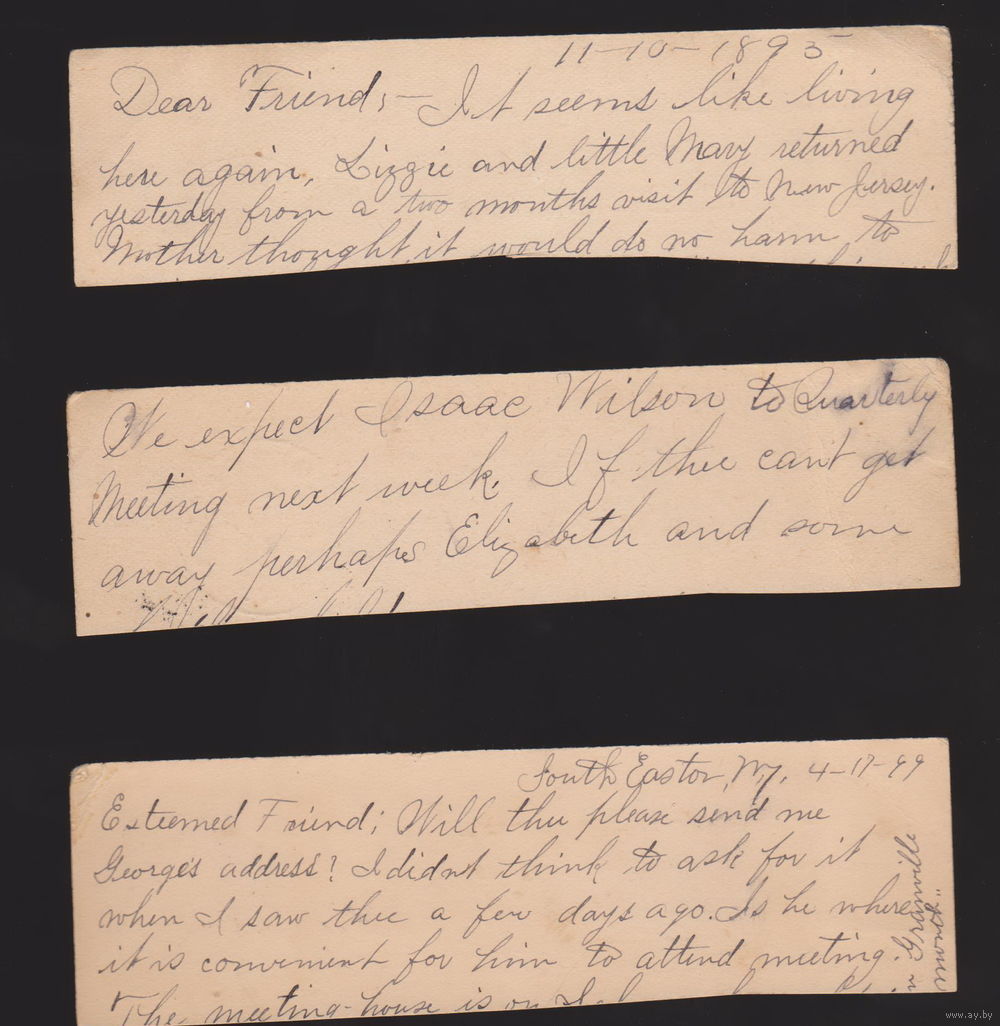 11-10-1895
Dear Friend;—It seems like living
here again, Lizzie and little Mary returned
yesterday from a two months visit to New Jersey.
Mother thought it would do no harm to
We expect Isaac Wilson to Quarterly
Meeting next week. If thee can't get
away perhaps Elizabeth and some
South Easton, N.Y. 4-17-99
Esteemed Friend; Will thee please send me
George's address? I didn't think to ask for it
when I saw thee a few days ago. Is he where
it is convenient for him to attend meeting.
The meeting-house is on
Granville
mont.
www.ay.by